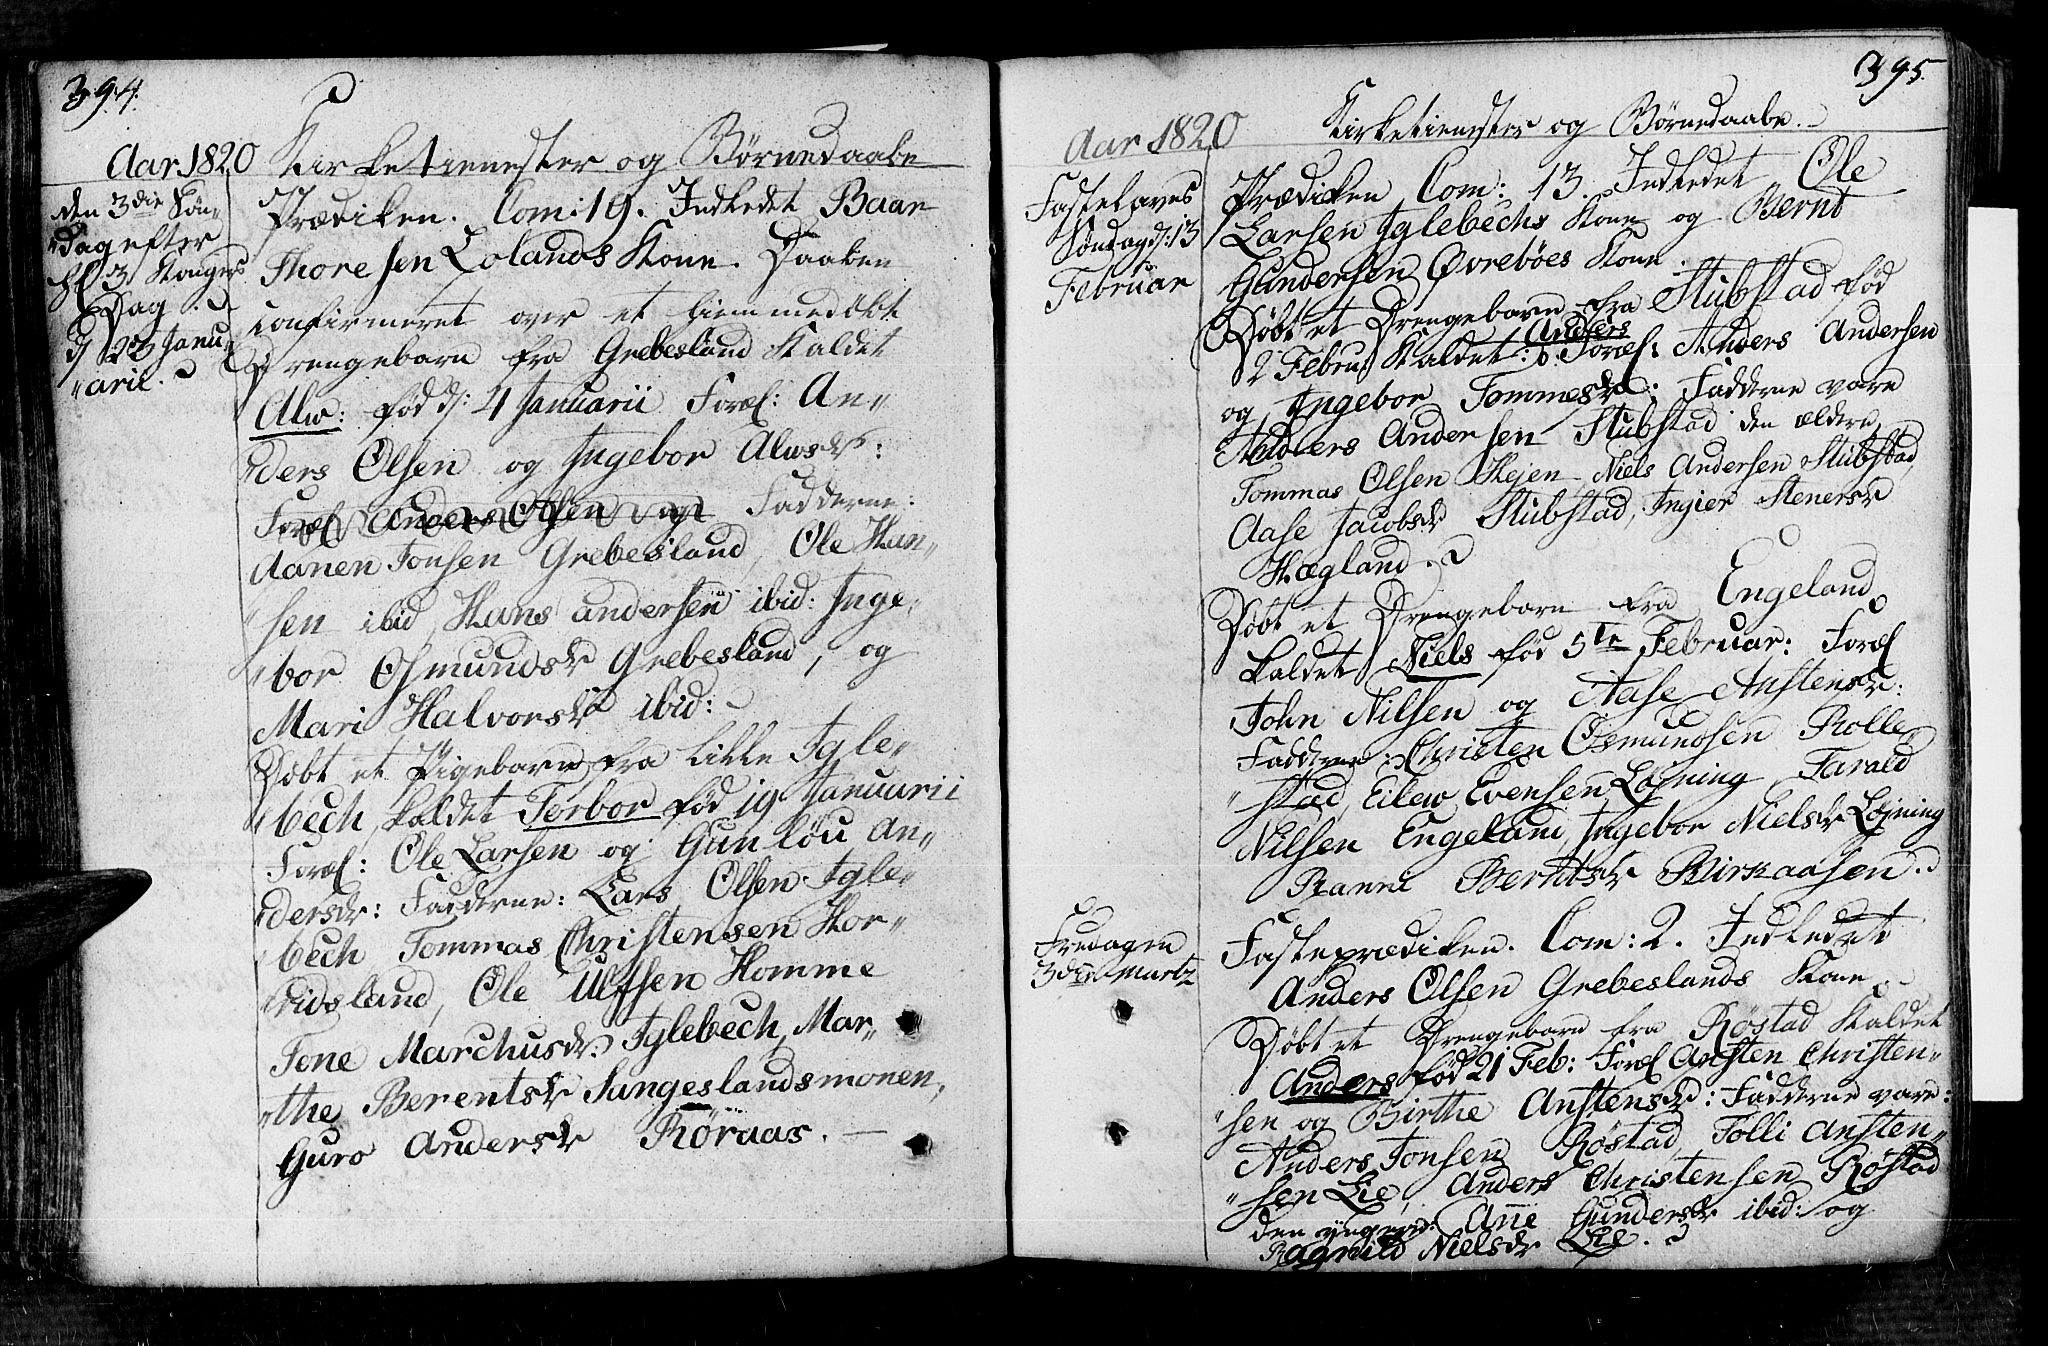 394.
Aar 1820
Kirketienester og Børnedaabe
den 3die Søn-
dag efter
Hl 3 Kongers
Dag.
d: 23 Janu-
arii.
Prædiken. Com: 19. Indledet Baar
Thoresen Lolands Kone. Daaben
confirmeret over et hiemmedøbt
Drengebarn fra Grebesland Kaldet
Alw: fød d: 4 Januarii Foræl: An-
ders Olsen og Ingebor Alwsdr:
Foræl Anders Olsen og Fadderne:
Aanen Tonsen Grebesland, Ole Han-
sen ibid, Hans andersen ibid: Inge-
bor Osmundsdr Grebesland, og
Mari Halvorsdr ibid:
Døbt et Pigebarn fra Lille Igle-
bech, kaldet Torbor fød 19 Januarii
Foræl: Ole Larsen og Gunløu An-
dersdr: Fadderne: Lars Olsen Igle-
bech Tommas Christensen Hor-
ridsland, Ole Ulfsen Homme
Tene Marchusdr: Iglebech, Mar-
the Berentsdr Sangeslandsmonen,
Guro Andersdr Røraas.
395
Aar 1820
Kirketienester og Børnedaabe.
Fastelavns
Søndag d: 13
Februar
Prædiken Com: 13. Indledet Ole
Larsen Iglebechs Kone og Bernt
Gundersen Øvrebøes Kone.
Døbt et Drengebarn fra Stubstad fød
Anders
2 Febru: Kaldet: Foræl: Anders Andersen
og Ingebor Tommesdr: Fadderne vare
Anders Andersen Stubstad den ældere
Tommas Olsen Hejen Niels Andersen Stubstad
Aase Jacobsdr Stubstad, Ingier Stenersdr
Hægland.
Døbt et Drengebarn fra Engeland
kaldet Niels fød 5te Februar: Foræl
John Nilsen og Aase Anstensdr:
Fadderne: Christen Osmundsen Rolle-
stad, Eilew Evensen Løjning, Tarald
Nilsen Engeland, Ingebor Nielsdr Løjning
Ranni Berntsdr Birkaasen.
Fredagen
3die Martz
Fasteprædiken. Com: 2. Indledet
Anders Olsen Grebeslands Kone.
Døbt et Drengebarn fra Røstad Kaldet
Anders fød 21 Feb: Foræl Ansten Christen-
sen og Birthe Anstensdr: Fadderne vare:
Anders Jonsen Røstad, Tolli Ansten-
sen Lie, Anders Christensen Røstad
den yngere: Ane Gundersdr ibid: og
Ragnild Nielsdr Lie.